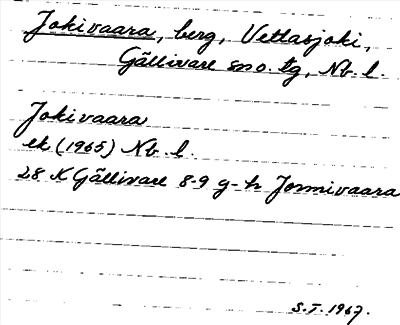 Jokivaara, berg, Vettasjoki,
Gällivare sn o. tg, Nb. l.
Jokivaara
ek (1965) Nb. l.
28 K Gällivare 8-9 g-h Jormivaara
S.T. 1967.